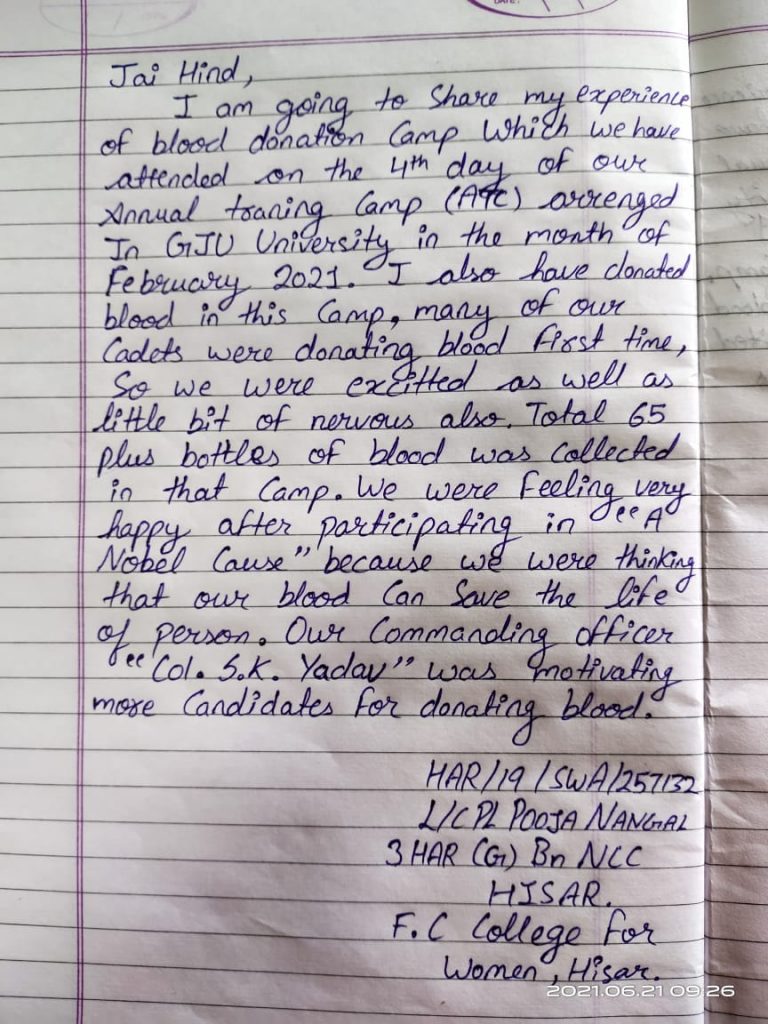 DATE:
Jai Hind,
I am going to Share my experience
of blood donation Camp Which we have
attended on the 4th day of our
Annual traning Camp (ATC) arrenged
In GJU University in the month of
February 2021. I also have donated
blood in this Camp, many of our
Cadets were donating blood First time,
So we were excitted as well as
little bit of nervous also. Total 65
plus bottles of blood was Collected
in that Camp. We were Feeling very
happy after participating in "A
Nobel Cause" because we were thinking
that our blood Can Save the life
of person. Our Commanding officer
"Col. S.K. Yadav" was motivating
more Candidates For donating blood.
HAR/19/SWA/257132
L/CPL POOJA NANGAL
3 HAR (G) Bn NCC
HISAR.
F.C College For
Women, Hisar.
2021.06.21 09:26